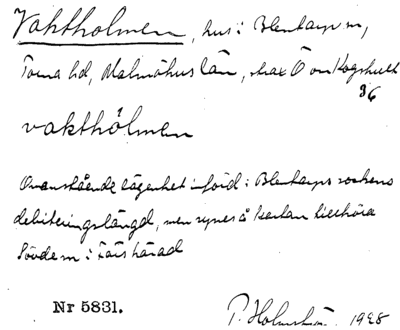 Vaktholmen, hus i Blentarps sn,
Torna hd, Malmöhus län, strax Ö om Kogshult
36
vakthȯlmen
Ovanstående lägenhet införd i Blentarps sockens
debiteringslängd, men synes å kartan tillhöra
Sövde sn i Färs härad
Nr 5831.
P. 1928